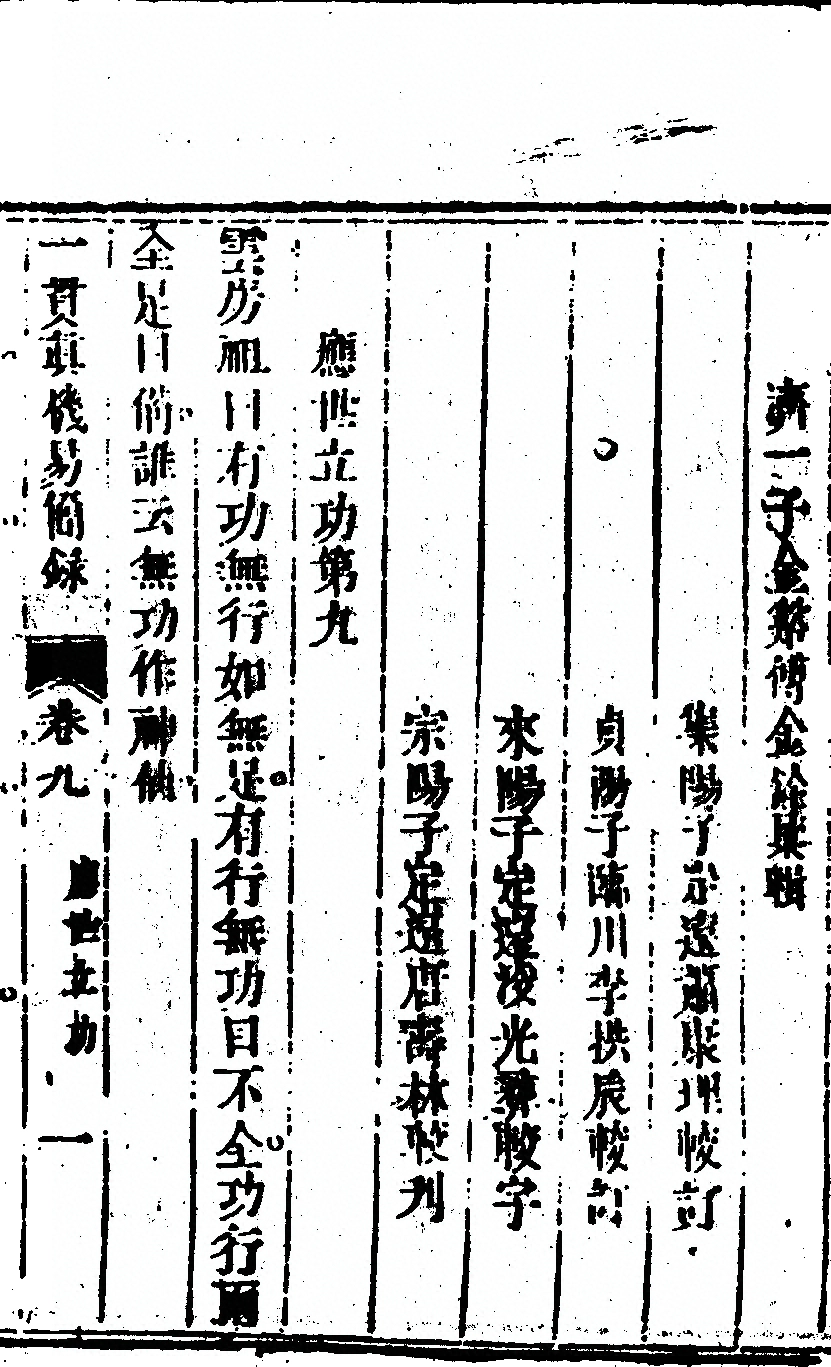 濟一子金谿傅金銓彙輯
集陽子定遠蕭康理校訂
貞陽子臨川李拱辰校訂
來陽子定遠凌光曌校字
宗陽子定遠唐壽林校刊
應世立功第九
雲房祖曰有功無行如無足有行無功目不全功行兩
全足目備誰云無功作神仙
一貫真機易簡録 卷九 應世立功 一